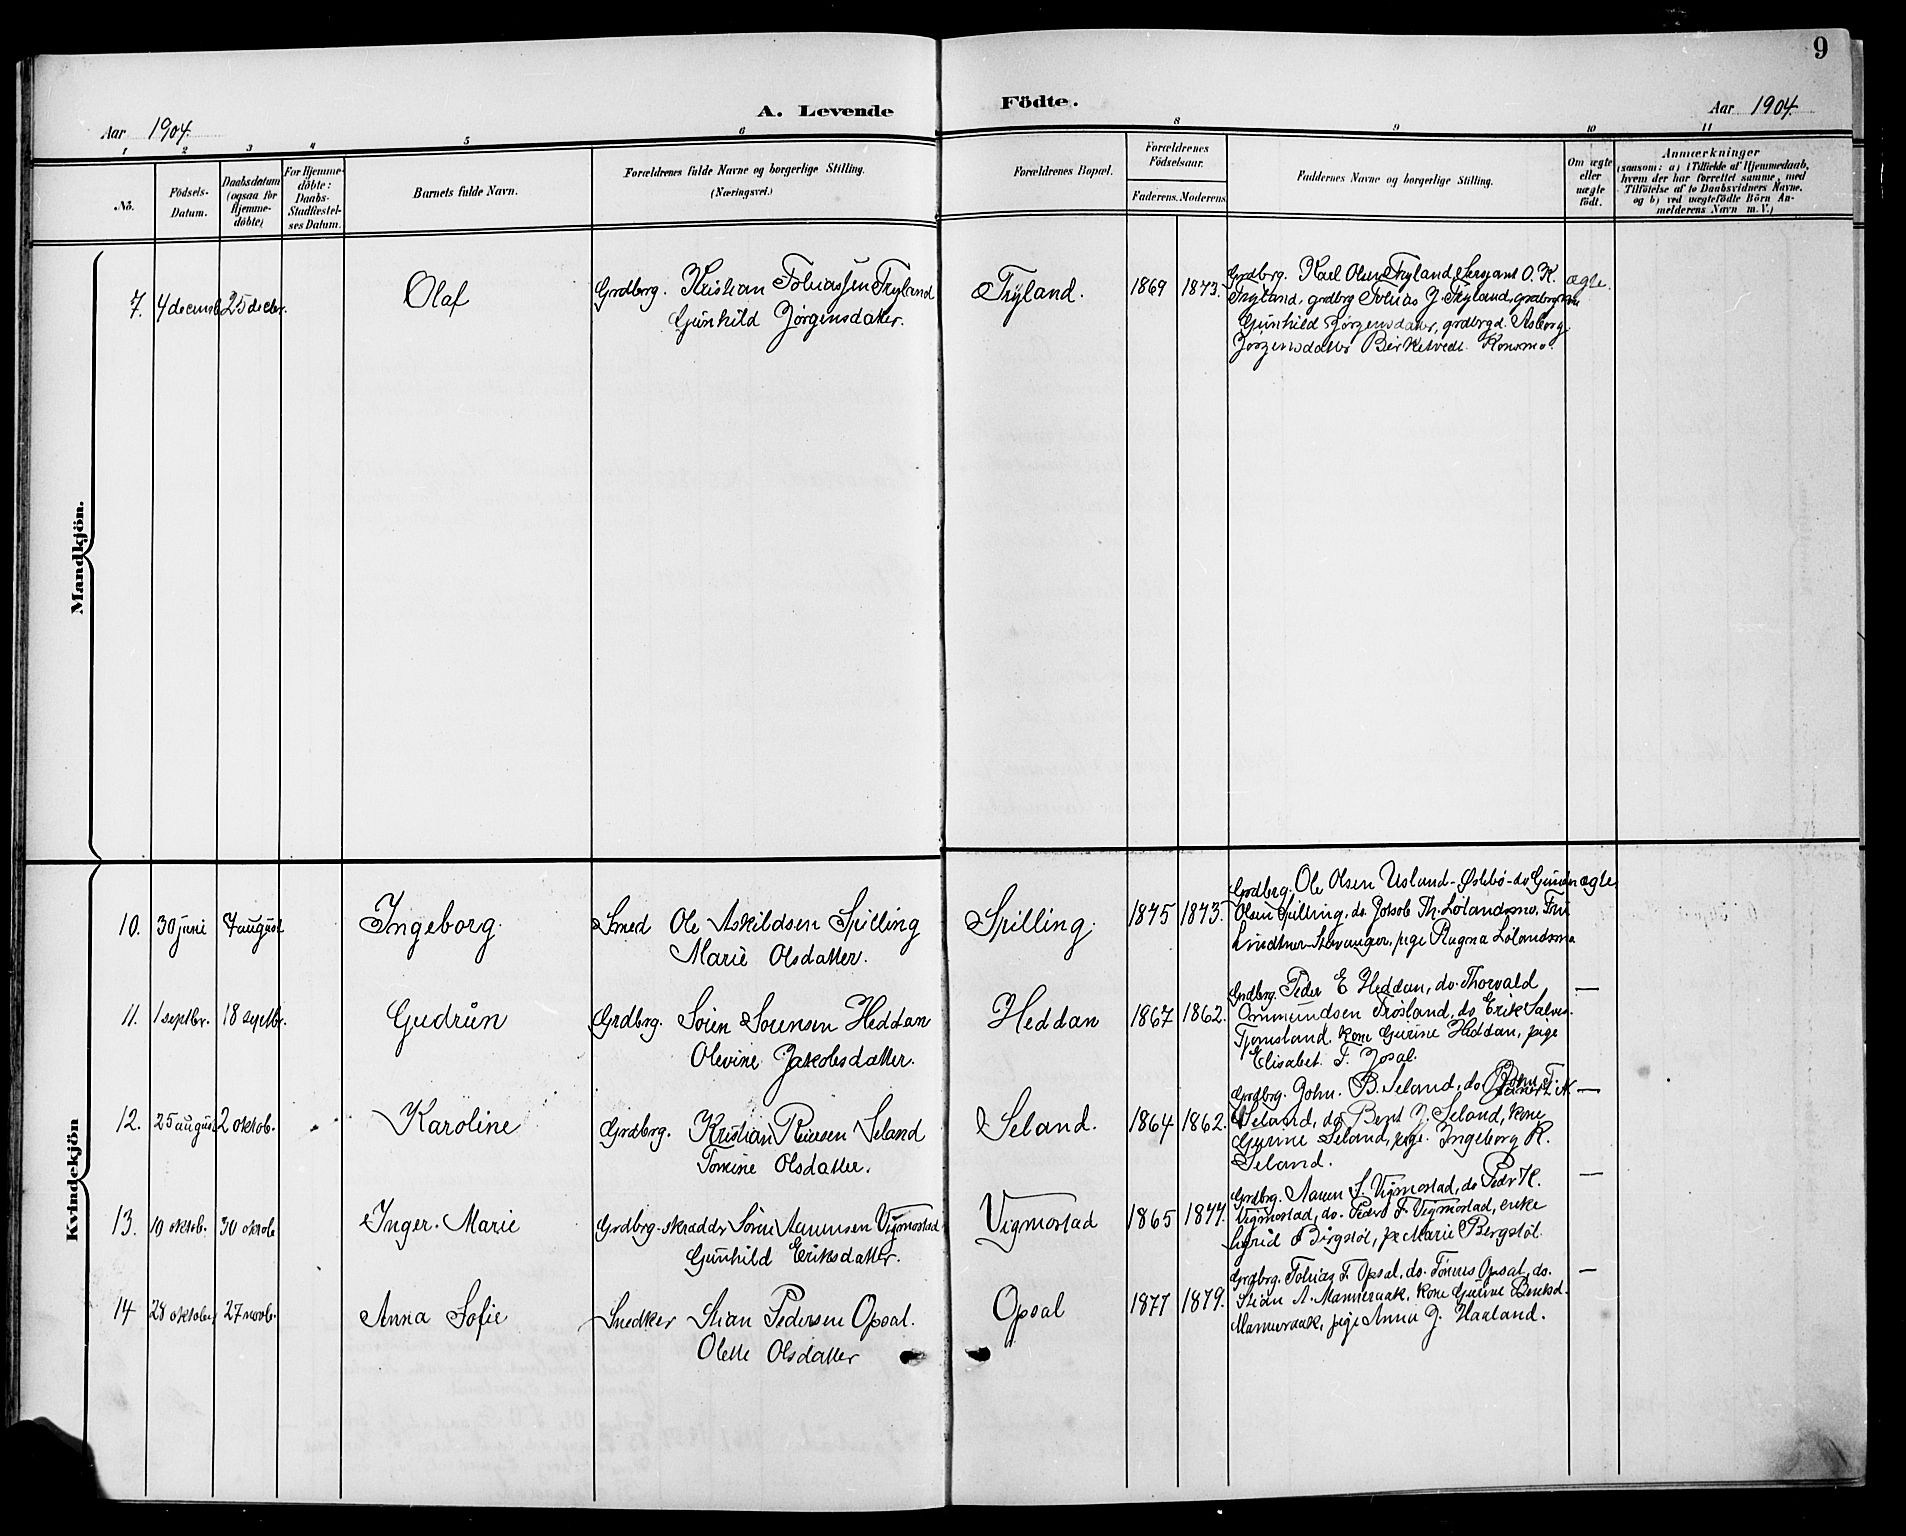 9
A. Levende Födte.
Aar 1904.
Aar 1904.
1 2 3 4 5 6 8 9 10 11
No.
Födsels-Datum.
Daabsdatum (ogsaa for Hjemme-döbte)
For Hjemme-döbte: Daabs-Stadfæstel-ses Datum.
Barnets fulde Navn.
Forældrenes fulde Navne og borgerlige Stilling.
(Næringsvei.)
Forældrenes Bopæl.
Forældrenes Födselsaar.
Faderens. Moderens.
Faddernes Navne og borgerlige Stilling.
Om ægte eller uægte født.
Anmærkninger
(saasom: a) i Tilfælde af Hjemmedaab,
hvem der har forrettet samme, med
Tilföielse af to Daabsvidners Navne.
og b) ved uægtefödte Börn An-
melderens Navn m. V.)
Mandkjön.
7. 4 decmb. 25 decbr. Olaf
Grdbrg. Kristian Tobiassen Tryland
Gunhild Jörgensdatter.
Tryland. 1869 1873.
Grdbrg. Karl Olsen Tryland, Sergant O. K.
Tryland, grdbrg Tobias J. Tryland, grdbrg
Gunhild Jörgensdatter, grdbrgd. Asborg
Jörgensdatter Birketvedt. Konsmo.
ægte.
Kvindekjön
10. 30 juni 7 august Ingeborg.
Smed Ole Askildsen Spilling
Marie Olsdatter.
Spilling. 1875 1873.
Grdbrg. Ole Olsen Usland-Øslebö-do Gunder
Olsen Spilling, do. Jakob Th. Lölandsmo, Fru
Lindtner-Stavanger, pige Ragna Lölandsmo
ægte
11. 1 septbr. 18 septbr. Gudrun
Grdbrg. Sören Sörensen Heddan
Olevine Jakobsdatter.
Heddan 1867 1862.
Grdbrg. Peder E Heddan, do. Thorvald
Ommundsen Frösland, do Erik Salves.
Tjomsland, kone Gurine Heddan, pige
Elisabet. T. Josal.
—
12. 25 august 2 oktob. Karoline
Grdbrg. Kristian Reiersen Seland
Tomine Olsdatter.
Seland. 1864 1862.
Grdbrg. John. B. Seland, do
Seland, do Bent J. Seland, kone
Gurine Seland, pige. Ingeborg K.
Seland.
—
13. 10 oktob. 30 oktob Inger. Marie
Grdbrg-skrædder Sören Aanensen Vigmostad
Gunhild Eriksdatter.
Vigmostad 1865 1877.
Grdbrg. Aanen S. Vigmostad, do Peder K.
Vigmostad, do. Peder T. Vigmostad, enke
Ingrid Birgstöl, pe Marie Bergstöl.
—
14 28 oktober 27 novb. Anna Sofie
Snedker Stian Pedersen Opsal.
Olette Olsdatter
Opsal 1877 1879.
Grdbrg. Tobias T. Opsal, do. Tönnes Opsal, do.
Stian A. Manneraak, kone Gurine Bentsd.
Manneraak, pige Anna J. Haaland.
—